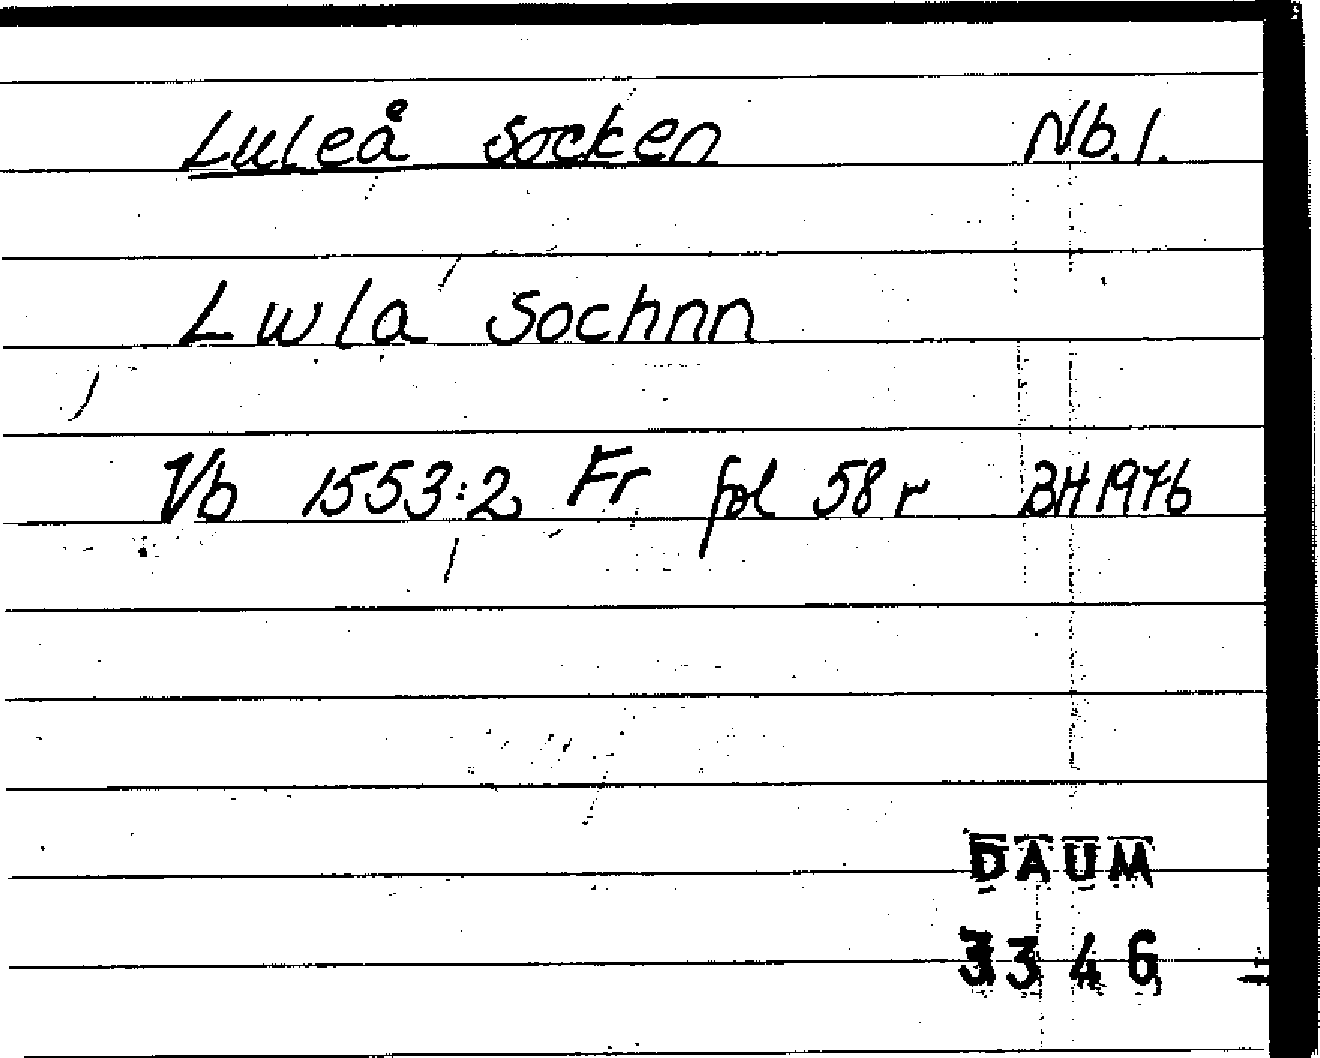 Luleå socken Nb.l.
Lwla sochnn
Vb 1553:2 Fr fol 58 r BH 1976
DAUM
3346